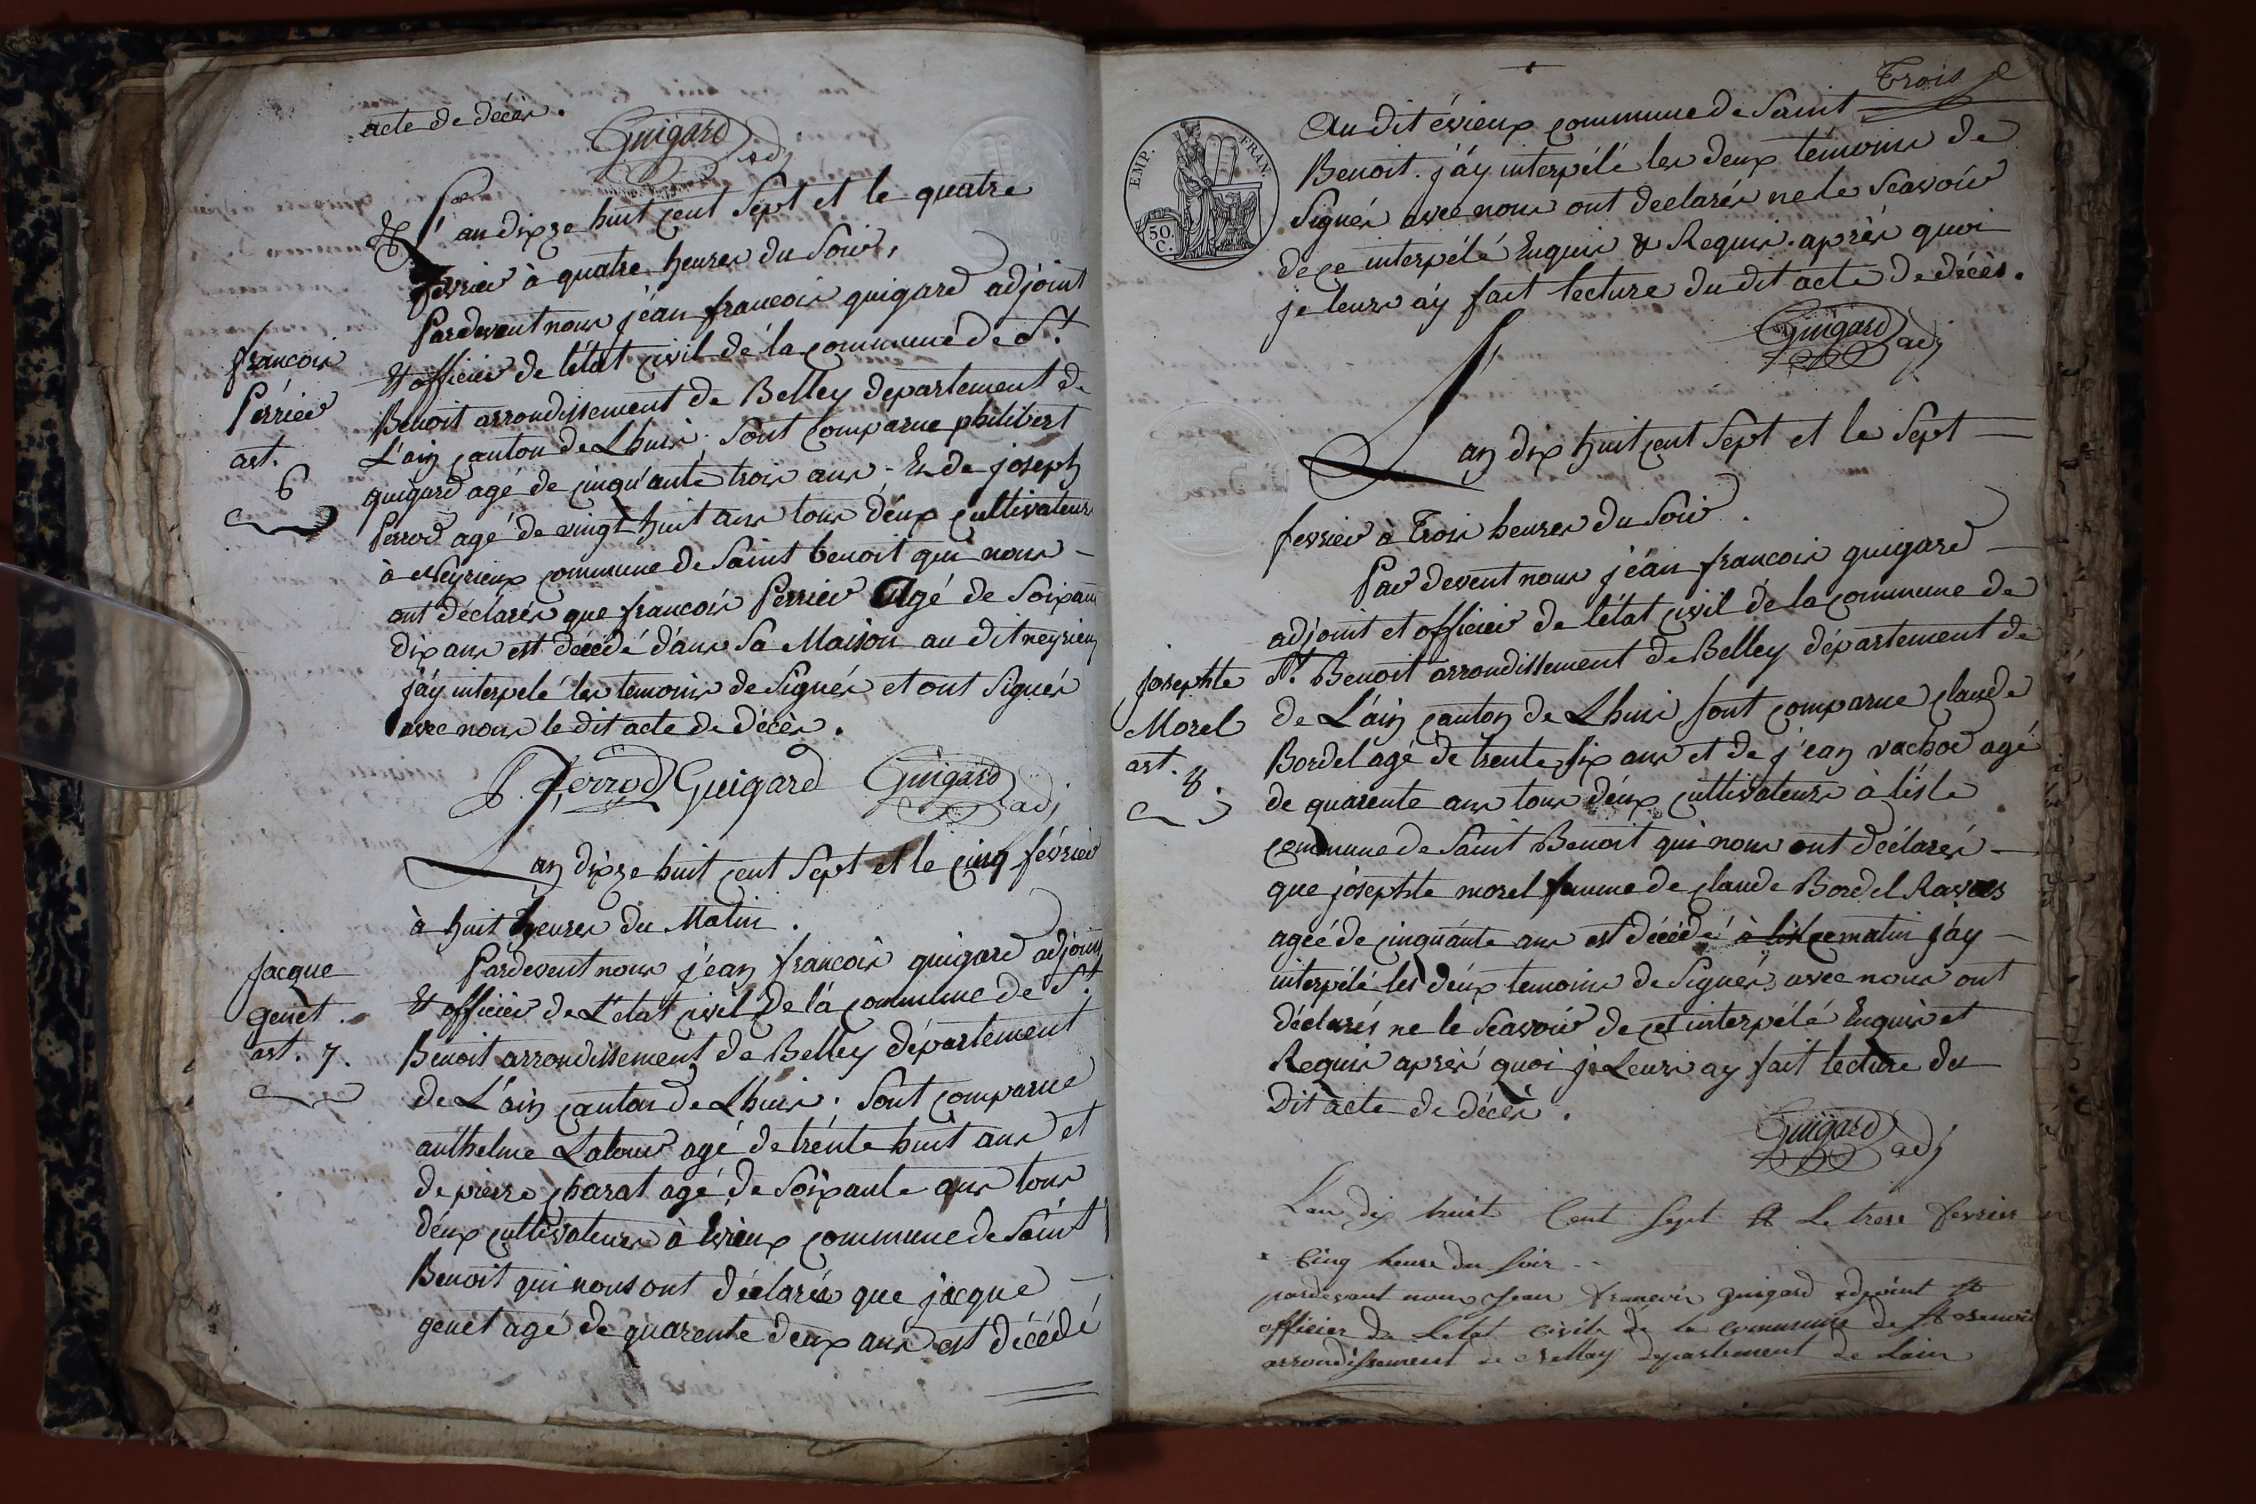 acte de décès.
Guigard adj
L'an dix ze huit cent sept et le quatre
fevrier à quatre heures du soir,
Pardevent nous jéan francois guigard adjoint
francois
Perrier
art.
6
& officier de l'état civil de la commune de St.
Benoit arrondissement de Belley departement de
L'ain canton de Lhuis. sont comparue philibert
guigard agé de cinqu'ante trois ans. Et de joseph
Perrod agé de vingt huit ans tous deux cultivateurs
à Neyrieux commune de Saint benoit qui nous
ont déclarés que francois Perrier Agé de Soixan
dix ans est décédé dans Sa Maison au dit neyrieu
j'áy interpelé les temoins de Signés et ont Signés
avec nous le dit acte de décès.
J. Perrod Guigard Guigard adj
L an dixze huit cent Sept et le cinq février
à huit heures du Matin.
Pardevent nous j'ean francois guigard adjoint
Jacque
genet.
art. 7.
& officier de L'etat civil de la commune de St.
Benoit arrondissement de Belley département
de L'ain canton de Lhuis. Sont comparue
anthelme Latour agé de trente huit ans et
de pierre charat agé de Soixante ans tous
deux cultivateurs à Evieux commune de Saint
Benoit qui nous ont déclarés que jacque
genet agé de quarente deux ans est décédé
Trois
EMP. FRAN.
50. C.
Au dit évieux commune de Saint
Benoit. j'áy interpélé les deux témoins de
Signés avec nous ont declarés ne le Scavoir
de ce interpélé Enquis & Requis. après quoi
je leurs áy fait lecture du dit acte de décès.
Guigard adj
L'an dix huit cent Sept et le Sept
fevrier à Trois heures du Soir.
Par devent nous jéan francois guigard
adjoint et officier de l'état civil de la commune de
Josephte
Morel
art.
8.
St. Benoit arrondissement de Belley département de
de L'ain canton de Lhuis sont comparue claude
Bordel agé de trente six ans et de j'ean vachod agé
de quarente ans tous deux cultivateurs à l'isle
commune de Saint Benoit qui nous ont déclarés
que josephte morel femme de claude Bordel
agéé de cinquánte ans est décédé à lisl ce matin j'áy
interpélé les deux temoins de Signés avec nous ont
déclarés ne le Scavoir de cet interpélé Enquis et
Requis après quoi je Leurs ay fait lecture du
Dit acte de décès.
Guigard adj
Lan dix huit Cent Sept & Le trese fevrier
Cinq heure du soir
pardevant nous jean francois guigard adjoint &
officier de Letat civile de la commune de St benoit
arrondissement de Bellay departement de Lain